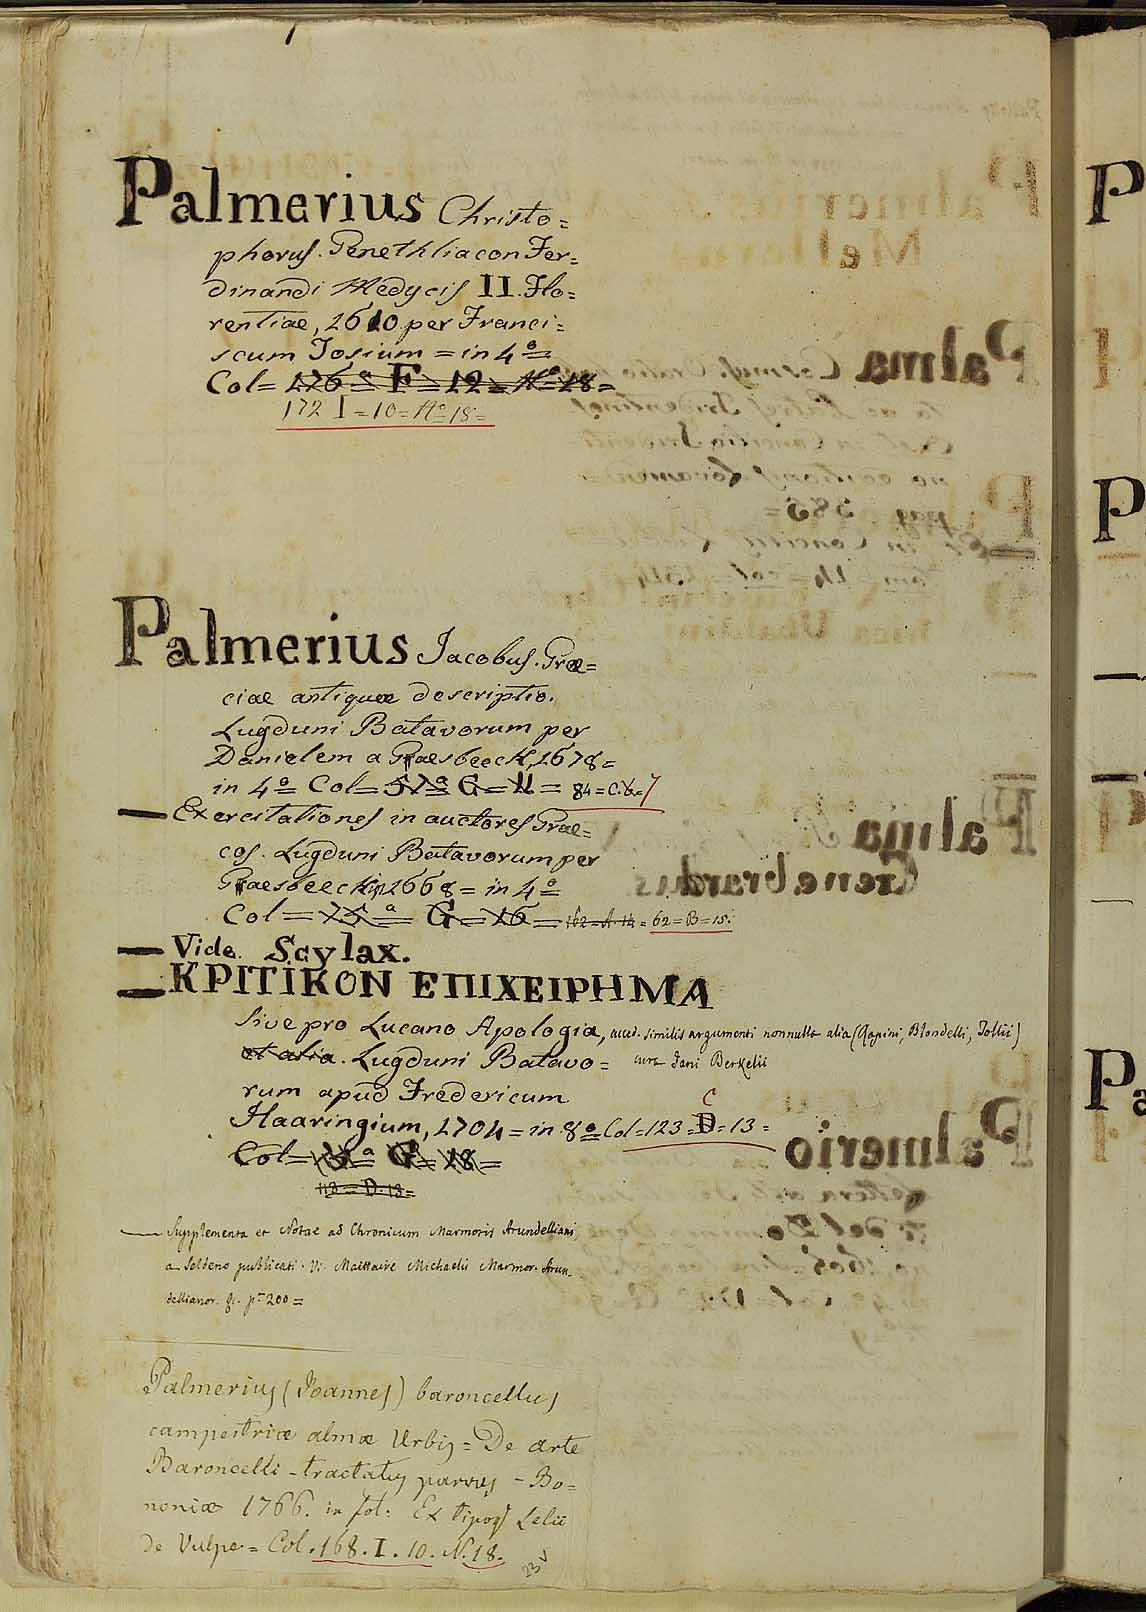 Palmerius Christo=
phorus. Genethliacon Fer=
dinandi Medycis II. Flo=
rentiae, 1610 per Franci=
scum Tosium = in 4º =
Col= 176ª = F = 12 = Nº 18 =
172 I = 10 = Nº 18 =
Palmerius Jacobus. Græ=
ciae antiquae descriptio.
Lugduni Batavorum per
Danielem a Graesbeeck, 1678 =
in 4º = Col = 57ª G = 11 = 84 = C. 6. = 7
— Exercitationes in auctores Grae=
cos. Lugduni Batavorum per
Graesbeeckin, 1668 = in 4º =
Col = 15ª = G = 16 = 162 = A. 14 = 62 = B = 15.
— Vide. Scylax.
— ΚΡΙΤΙΚΟΝ ΕΠΙΧΕΙΡΗΜΑ
sive pro Lucano Apologia, acced. similis argumenti nonnulla alia (Rapini, Blondelli, Tollii)
et alia. Lugduni Batavo= cura Jani Berkelii
rum apud Fredericum
Haaringium, 1704 = in 8º = Col = 123 = D = 13 =
C
Col = ª G = 18 =
113 = D. 13 =
— Supplementa et Notae ad Chronicum Marmoris Arundelliani,
a Seldeno publicati. V. Maittaire Michaelis Marmor. Arun_
dellianor. &. p. 200 =
Palmerius (Joannes) baroncellus
campestriæ almæ Urbis = De arte
Baroncelli - tractatus parvus - Bo=
noniæ 1766. in fol: Ex tipog. Lelii
de Vulpe = Col. 168. I. 10. N. 18.